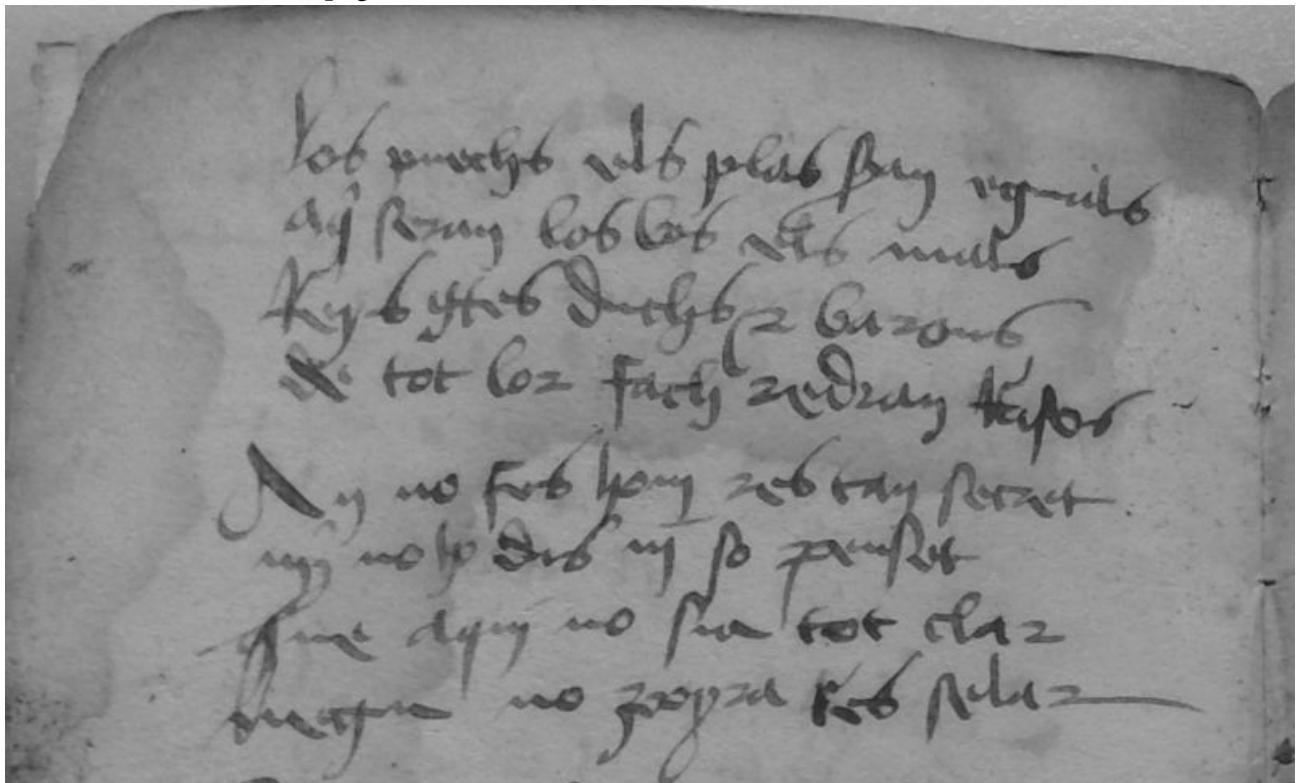 los puechs els plas sean eguals
aqi seran los bos els mals
Reys contes duchs e barons
de tot lor fach redran rasos
An no fes hom res tan secret
ni no ho dis ni so penset
que aqui no sia tot clar
negu no poyra res selar